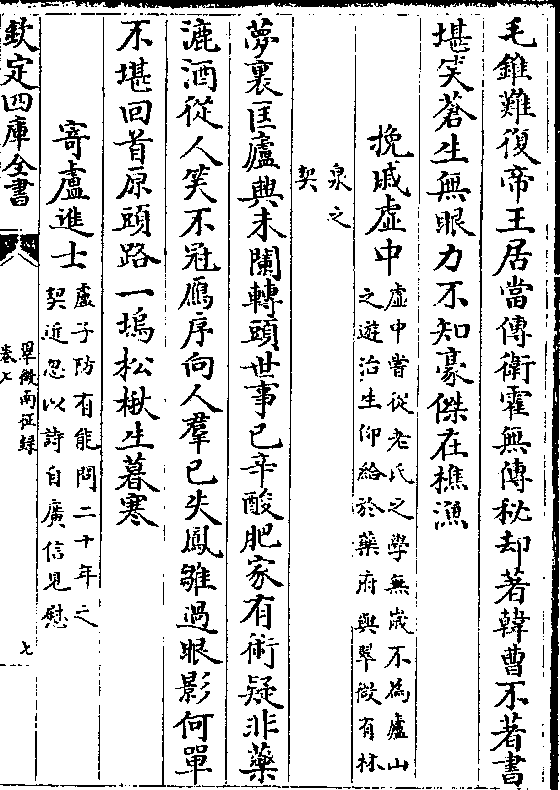 毛錐難復帝王居當傳衛霍無傳秘却著韓曹不著書
堪笑蒼生無眼力不知豪傑在樵漁
挽戚虛中
虛中嘗從老氏之學無歲不為廬山
之遊治生仰給於藥府與翠微有林
泉之
契
夢裏匡廬興未闌轉頭世事已辛酸肥家有術疑非藥
漉酒從人笑不冠鴈序向人羣已失鳳雛過眼影何單
不堪回首原頭路一塢松楸生暮寒
寄盧進士
盧子防有能問二十年之
契近忽以詩自廣信見慰
欽定四庫全書
翠微南征録
卷七
七